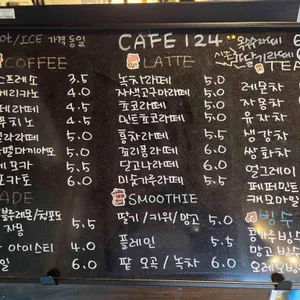 OT/ICE 가격 동일
CAFE 124
옥수수라떼 6
딸기라떼
COFFEE
스프레소 3.5
메리카노 4.0
페라떼 4.5
푸치노 4.5
닐라라떼 5.0
라멜마끼아또 5.0
페모카 5.5
포가토 6.0
LATTE
녹차라떼 5.0
자색고구마라떼 5.0
초코라떼 5.0
민트초코라떼 5.0
홍차라떼 5.5
달고나라떼 6.0
미숫가루라떼 5.5
TEA
레몬차
자몽차
유자차
생강차
쌍화차
얼그레이
페퍼민트
캐모마일
ADE
자몽 5.5
아이스티 4.0
일 6.0
SMOOTHIE
딸기/키위/망고 5.0
플레인 5.5
팥 오곡/녹차 6.0
빙수
콩가루빙수
망고빙수
오레오빙수